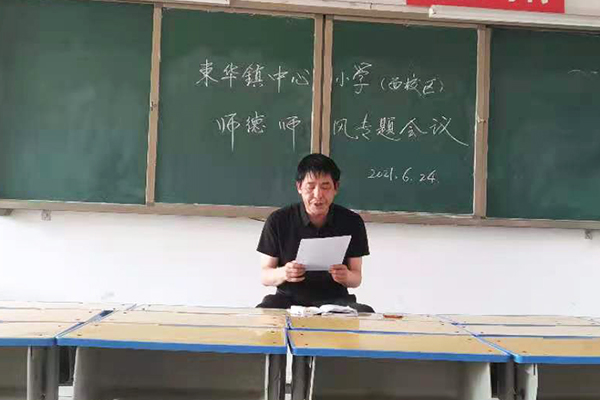 東华鎮中心小学（西校区）
师德师风专题会议
2021.6.24.